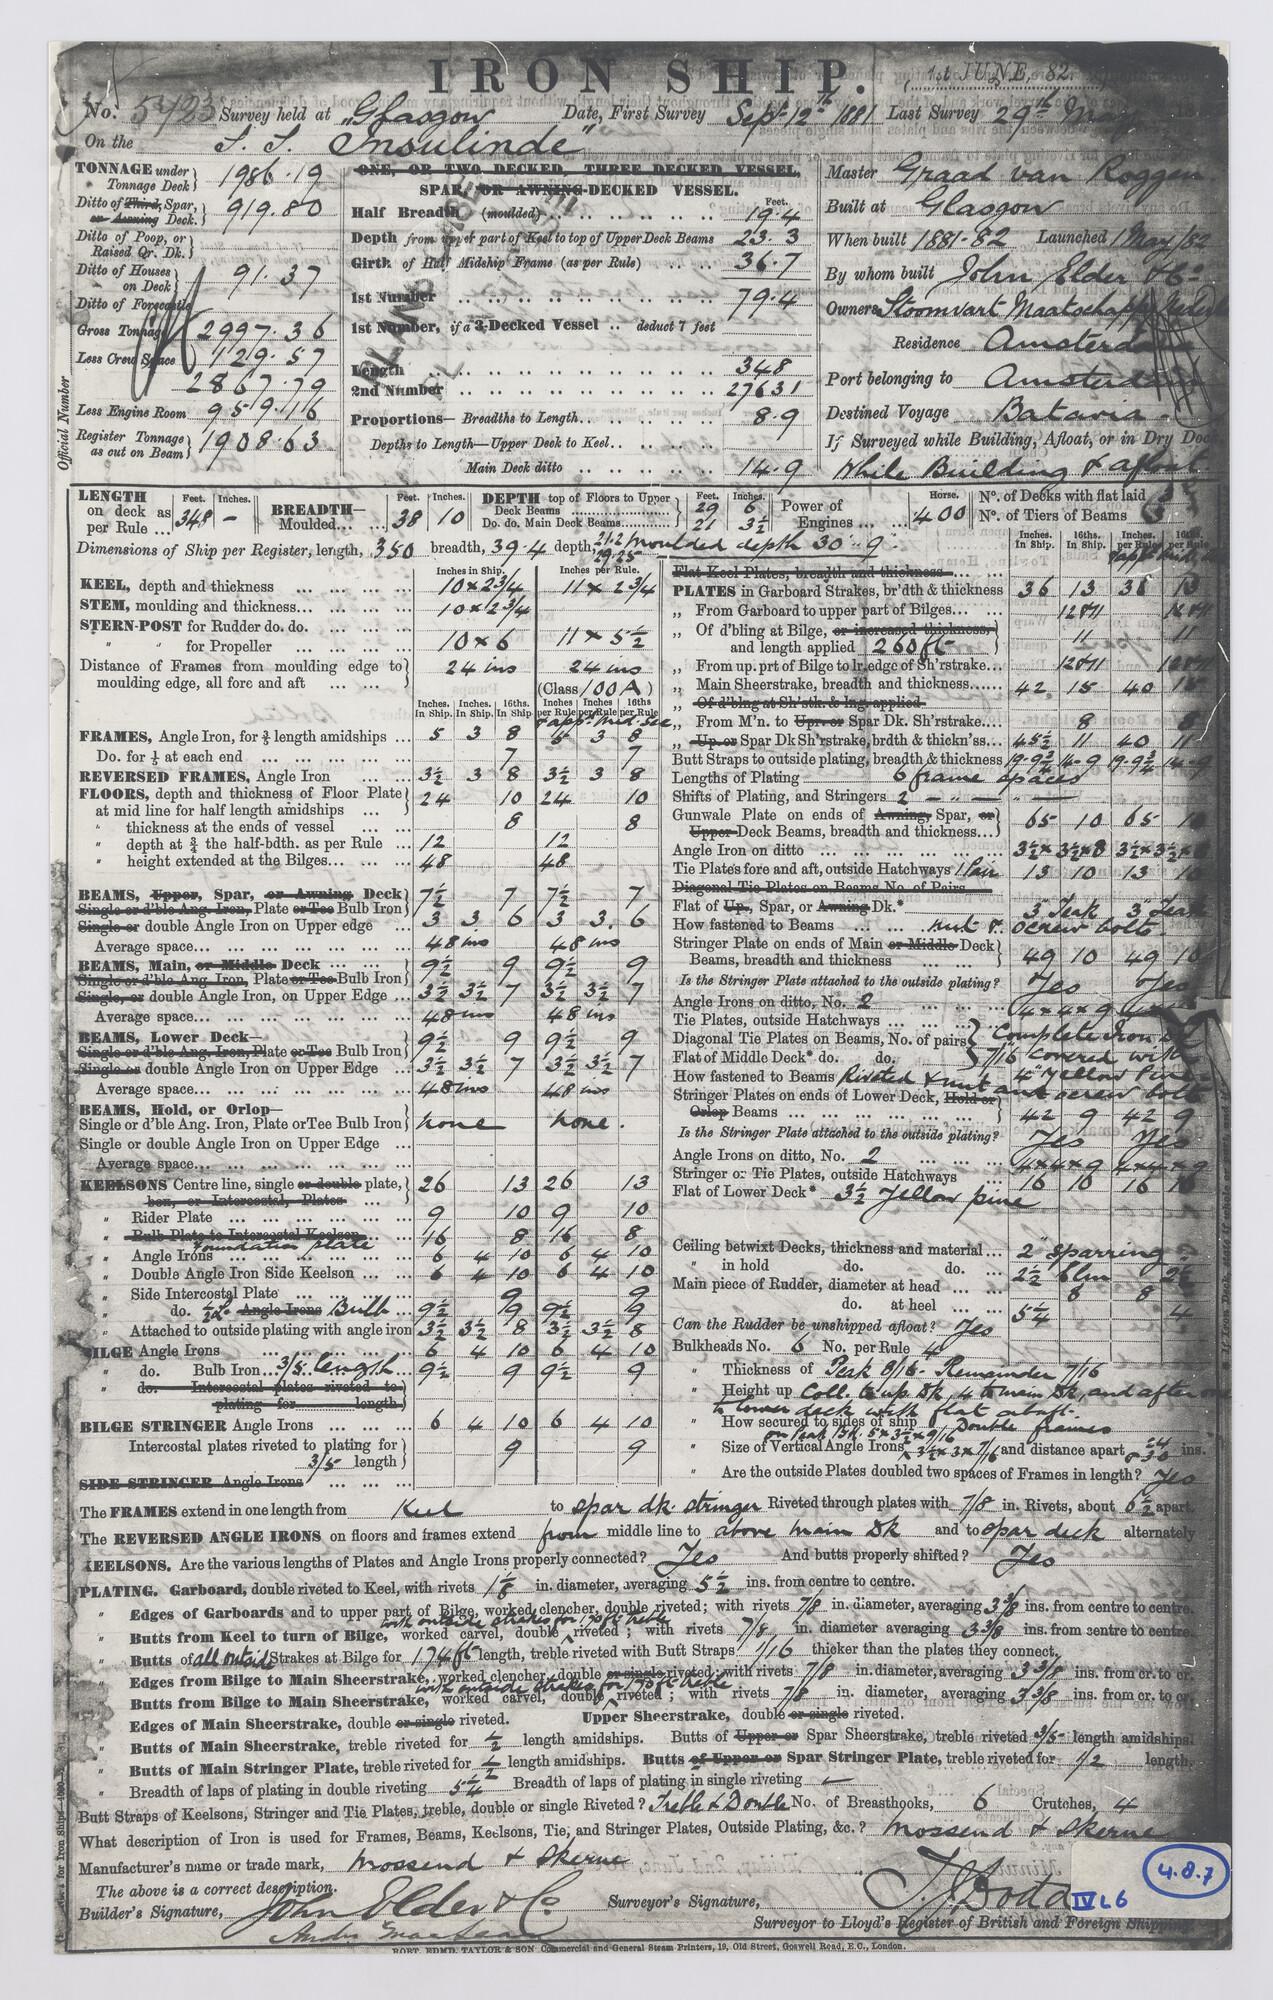 IRON SHIP.
1st JUNE, 82.
No. 5423 Survey held at Glasgow Date, First Survey Sept 12th 1881 Last Survey 29th May
On the S. S. "Insulinde"
TONNAGE under Tonnage Deck 1986.19
Ditto of Third, Spar, or Awning Deck. 919.80
Ditto of Poop, or Raised Qr. Dk.
Ditto of Houses on Deck 91.37
Ditto of Forecastle
Gross Tonnage 2997.36
Less Crew Space 129.57
2867.79
Less Engine Room 959.16
Register Tonnage as cut on Beam 1908.63
Official Number
ONE, OR TWO DECKED, THREE DECKED VESSEL,
SPAR, OR AWNING-DECKED VESSEL.
Feet.
Half Breadth (moulded) 19.4
Depth from upper part of Keel to top of Upper Deck Beams 23.3
Girth of Half Midship Frame (as per Rule) 36.7
1st Number 79.4
1st Number, if a 3-Decked Vessel deduct 7 feet
Length 348
2nd Number 27631
Proportions— Breadths to Length 8.9
Depths to Length—Upper Deck to Keel
Main Deck ditto 14.9
Master Graad van Roggen
Built at Glasgow
When built 1881-82 Launched 1 May/82
By whom built John Elder & Co
Owners Stoomvart Maatschapp
Residence Amsterdam
Port belonging to Amsterdam
Destined Voyage Batavia
If Surveyed while Building, Afloat, or in Dry Dock
While Building & afloat
LENGTH on deck as per Rule Feet. 348 Inches. -
BREADTH—Moulded Feet. 38 Inches. 10
DEPTH top of Floors to Upper Deck Beams Feet. 29 Inches. 6
Do. do. Main Deck Beams 21 3½
Power of Engines Horse. 400
No. of Decks with flat laid 3
No. of Tiers of Beams 3
Dimensions of Ship per Register, length, 350 breadth, 39.4 depth, 21.2 29.25 Moulded depth 30" 9'
Inches in Ship. Inches per Rule.
KEEL, depth and thickness 10 x 2 3/4 11 x 2 3/4
STEM, moulding and thickness 10 x 2 3/4
STERN-POST for Rudder do. do.
" " for Propeller 10 x 6 11 x 5½
Distance of Frames from moulding edge to moulding edge, all fore and aft 24 ins 24 ins
(Class 100 A)
Inches In Ship. Inches In Ship. 16ths In Ship. Inches per Rule Inches per Rule 16ths per Rule
FRAMES, Angle Iron, for ⅗ length amidships 5 3 8 5 3 8
Do. for ⅕ at each end 7 7
REVERSED FRAMES, Angle Iron 3½ 3 8 3½ 3 8
FLOORS, depth and thickness of Floor Plate at mid line for half length amidships 24 10 24 10
" thickness at the ends of vessel 8 8
" depth at ¾ the half-bdth. as per Rule 12 12
" height extended at the Bilges 48 48
BEAMS, Upper, Spar, or Awning Deck
Single or d'ble Ang. Iron, Plate or Tee Bulb Iron 7½ 7 7½ 7
Single or double Angle Iron on Upper edge 3 3 6 3 3 6
Average space 48 ins 48 ins
BEAMS, Main, or Middle Deck
Single or d'ble Ang. Iron, Plate or Tee Bulb Iron 9½ 9 9½ 9
Single, or double Angle Iron, on Upper Edge 3½ 3½ 7 3½ 3½ 7
Average space 48 ins 48 ins
BEAMS, Lower Deck—
Single or d'ble Ang. Iron, Plate or Tee Bulb Iron 9½ 9 9½ 9
Single or double Angle Iron on Upper Edge 3½ 3½ 7 3½ 3½ 7
Average space 48 ins 48 ins
BEAMS, Hold, or Orlop—
Single or d'ble Ang. Iron, Plate or Tee Bulb Iron none none.
Single or double Angle Iron on Upper Edge
Average space
KEELSONS Centre line, single or double plate, box, or Intercostal, Plates 26 13 26 13
" Rider Plate 9 10 9 10
" Bulb Plate to Intercostal Keelson Foundation plate 16 8 16 8
" Angle Irons 6 4 10 6 4 10
" Double Angle Iron Side Keelson 6 4 10 6 4 10
" Side Intercostal Plate 9 9
" do. Angle Irons Bulb 9½ 9 9½ 9
" Attached to outside plating with angle iron 3½ 3½ 8 3½ 3½ 8
BILGE Angle Irons 6 4 10 6 4 10
" do. Bulb Iron 3/5 length 9½ 9 9½ 9
" do. Intercostal plates riveted to plating for length
BILGE STRINGER Angle Irons 6 4 10 6 4 10
Intercostal plates riveted to plating for 3/5 length 9 9
SIDE STRINGER Angle Irons
Flat Keel Plates, breadth and thickness
Inches In Ship. 16ths In Ship. Inches per Rule 16ths per Rule
PLATES in Garboard Strakes, br'dth & thickness 36 13 36 13
" From Garboard to upper part of Bilges 12&11 12&11
" Of d'bling at Bilge, or increased thickness, and length applied 260 ft 11 11
" From up. prt of Bilge to lr. edge of Sh'rstrake 12&11
" Main Sheerstrake, breadth and thickness 42 15 40 15
" Of d'bling at Sh'stk. & lng. applied
" From M'n. to Upr. or Spar Dk. Sh'rstrake 8 8
" Up. or Spar Dk Sh'rstrake, brdth & thickn'ss 45½ 11 40 11
Butt Straps to outside plating, breadth & thickness
Lengths of Plating 6 frame spaces
Shifts of Plating, and Stringers 2 — " — " —
Gunwale Plate on ends of Awning, Spar, or Upper Deck Beams, breadth and thickness 65 10 65 10
Angle Iron on ditto 3½ x 3½ x 8 3½ x 3½ x 8
Tie Plates fore and aft, outside Hatchways 1 Pair 13 10 13 10
Diagonal Tie Plates on Beams No. of Pairs
Flat of Up., Spar, or Awning Dk.* 3 Teak 3" Teak
How fastened to Beams nut & screw bolts.
Stringer Plate on ends of Main or Middle Deck Beams, breadth and thickness 49 10 49 10
Is the Stringer Plate attached to the outside plating? Yes Yes
Angle Irons on ditto, No. 2 4 x 4 x 9
Tie Plates, outside Hatchways
Diagonal Tie Plates on Beams, No. of pairs Complete Iron Dk
Flat of Middle Deck* do. do. 7/16 covered with
How fastened to Beams Riveted & nut and screw bolts 4" Yellow Pine
Stringer Plates on ends of Lower Deck, Hold or Orlop Beams 42 9 42 9
Is the Stringer Plate attached to the outside plating? Yes Yes
Angle Irons on ditto, No. 2 4 x 4 x 9 4 x 4 x 9
Stringer or Tie Plates, outside Hatchways 16 10 16 10
Flat of Lower Deck* 3½ Yellow pine
Ceiling betwixt Decks, thickness and material 2" sparring
" in hold do. do. 2½ Elm 2½
Main piece of Rudder, diameter at head 8 8
do. at heel 5¼ 4
Can the Rudder be unshipped afloat? Yes
Bulkheads No. 6 No. per Rule 4
" Thickness of Peak 8/16 Remainder 7/16
" Height up Coll. to up. Dk, 4 to main Dk, and after one to lower deck with flat abaft.
" How secured to sides of ship Double frames
" Size of Vertical Angle Irons on Peak Bk. 5 x 3½ x 9/16 3½ x 3 x 7/16 and distance apart 24 & 30 ins.
" Are the outside Plates doubled two spaces of Frames in length? Yes
The FRAMES extend in one length from Keel to spar dk. stringer Riveted through plates with 7/8 in. Rivets, about 6½ apart.
The REVERSED ANGLE IRONS on floors and frames extend from middle line to above main Dk and to spar deck alternately
KEELSONS. Are the various lengths of Plates and Angle Irons properly connected? Yes And butts properly shifted? Yes
PLATING. Garboard, double riveted to Keel, with rivets 1⅛ in. diameter, averaging 5½ ins. from centre to centre.
" Edges of Garboards and to upper part of Bilge, worked clencher, double riveted; with rivets 7/8 in. diameter, averaging 3⅜ ins. from centre to centre.
with outside strakes for 170 ft treble
" Butts from Keel to turn of Bilge, worked carvel, double riveted; with rivets 7/8 in. diameter averaging 3⅜ ins. from centre to centre.
" Butts of all outside Strakes at Bilge for 174 ft length, treble riveted with Butt Straps 1/16 thicker than the plates they connect.
Edges from Bilge to Main Sheerstrake, worked clencher, double or single riveted; with rivets 7/8 in. diameter, averaging 3⅜ ins. from cr. to cr.
with outside strakes for 170 ft treble
Butts from Bilge to Main Sheerstrake, worked carvel, double riveted; with rivets 7/8 in. diameter, averaging 3⅜ ins. from cr. to cr.
Edges of Main Sheerstrake, double or single riveted. Upper Sheerstrake, double or single riveted.
" Butts of Main Sheerstrake, treble riveted for ½ length amidships. Butts of Upper or Spar Sheerstrake, treble riveted 3/5 length amidships.
" Butts of Main Stringer Plate, treble riveted for ½ length amidships. Butts of Upper or Spar Stringer Plate, treble riveted for 1/2 length.
" Breadth of laps of plating in double riveting 5¼ Breadth of laps of plating in single riveting —
Butt Straps of Keelsons, Stringer and Tie Plates, treble, double or single Riveted? Treble & Double No. of Breasthooks, 6 Crutches, 4
What description of Iron is used for Frames, Beams, Keelsons, Tie, and Stringer Plates, Outside Plating, &c.? Mossend & Skerne
Manufacturer's name or trade mark, Mossend & Skerne
The above is a correct description.
Builder's Signature, John Elder & Co Surveyor's Signature,
Surveyor to Lloyd's Register of British and Foreign Shipping.
ROBT. EDMD. TAYLOR & SON Commercial and General Steam Printers, 19, Old Street, Goswell Road, E.C., London.
4.8.7
IV L6